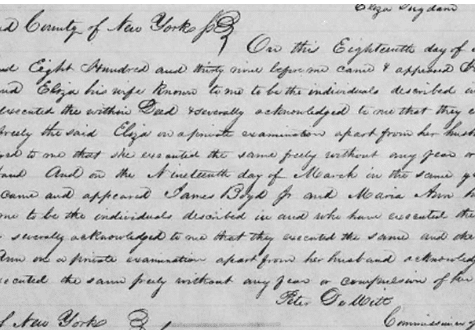 Eliza Sugdam
d County of New York SS
On this Eighteenth day of
nd Eight Hundred and thirty nine before me came & appeared
and Eliza his wife known to me to be the individuals described in
executed the within Deed & severally acknowledged to me that they e
freely the said Eliza on a private examination apart from her husb
ed to me that she executed the same freely without any fear or
band And on the Nineteenth day of March in the same ye
came and appeared James Boyd Jr and Maria Ann
me to be the individuals discribed in and who have executed the
severally acknowledged to me that they executed the same and the
Ann on a private examination apart from her husband acknowledg
executed the same freely without any fear or compulsion of her
Peter DeWitt
Commissioner of
of New York